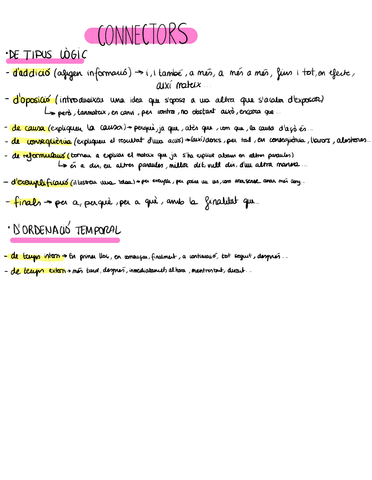 CONNECTORS
· DE TIPUS LÒGIC
- d'addició (afigen informació) → i, i també, a més, a més a més, fins i tot, en efecte,
així mateix
- d'oposició (introdueixen una idea que s'oposa a una altra que s'acaba d'exposar)
↳ però, tanmateix, en canvi, per contra, no obstant això, encara que...
- de causa (expliquen la causa) → perquè, ja que, atés que, com que, la causa d'açò és...
- de conseqüència (expliquen el resultat d'una acció) → així doncs, per tant, en conseqüència, llavors, aleshores...
- de reformulació (tornen a explicar el mateix que ja s'ha explicat abans en altres paraules)
↳ és a dir, en altres paraules, millor dit, molt dir, d'una altra manera...
- d'exemplificació (il·lustren una idea) → per exemple, per posar un cas, com ara,
- finals → per a, perquè, per a què, amb la finalitat que...
· D'ORDENACIÓ TEMPORAL
- de temps intern → En primer lloc, en començar, finalment, a continuació, tot seguit, després...
- de temps extern → més tard, després, immediatament, alhora, mentrestant, durant...